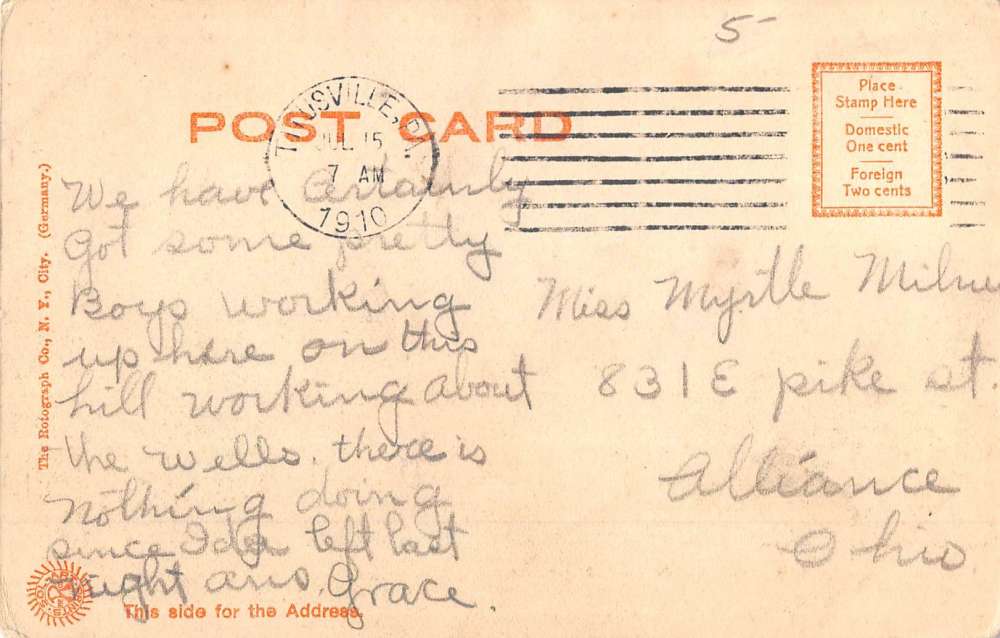 5-
POST CARD
TITUSVILLE, PA.
JUL 15
7 AM
1910
Place
Stamp Here
Domestic
One cent
Foreign
Two cents
The Rotograph Co., N. Y., City. (Germany.)
We have certainly
Got some pretty
Boys working
up here on this
hill working about
the wells. there is
nothing doing
since Ida left last
night ans. Grace.
Miss Myrtle Milner
831 E pike st.
Alliance
Ohio
This side for the Address.